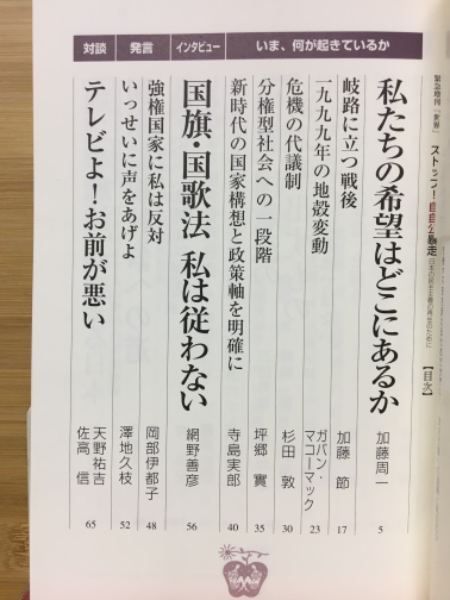 緊急増刊『世界』
ストップ!自自公暴走
日本の民主主義の再生のために
【目次】
いま、何が起きているか
私たちの希望はどこにあるか 加藤周一 5
岐路に立つ戦後 加藤 節 17
一九九九年の地殻変動 ガバン・マコーマック 23
危機の代議制 杉田 敦 30
分権型社会への一段階 坪郷 實 35
新時代の国家構想と政策軸を明確に 寺島実郎 40
インタビュー
国旗・国歌法 私は従わない 網野善彦 56
発言
強権国家に私は反対 岡部伊都子 48
いっせいに声をあげよ 澤地久枝 52
対談
テレビよ!お前が悪い 天野祐吉 佐高 信 65